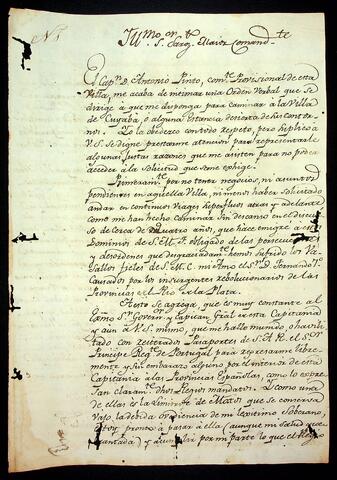 N.1
Illmo. Sor. Sargto. Maior Comandte.
El Capn. D. Antonio Pinto, comte. Provisional de esta
Villa, me acaba de intimar una Orden Verbal que se
dirige à que me disponga para caminar à la Villa
de Cuyabá, o alguna Estancia desierta de sus contor-
nos. Yo la obedezco con todo respeto, pero suplico a
V.S. se digne prestarme atencion para representarle
algunas justas razones que me asisten para no poder
acceder à la solicitud que se me exhige.
Primeramte. por no tener negocios, ni asuntos
pendientes en aquella Villa, ni menos haber solicitado
andar en continuos viages superfluos atras y adelante
como me han hecho caminar sin descanso en el discur-
so de cerca de quatro años, que hace emigré a estos
Dominios de S.A.R. obligado de las persecuciones
y desordenes que desgraciadamte. hemos sufrido los Va-
sallos fieles de S.M.C. mi Amo el Sr. D. Fernando 7o.
causados por los insurgentes revolucionarios de las
Provincias del Rio de la Plata.
A esto se agrega, que es muy constante al
Exmo. Sr. Governr. y Capitan Gral de esta Capitania
y aún a V.S. mismo, que me hallo mundo, o havili-
tado con reiterados Pasaportes de S.A.R. el Sr.
Principe Regte. de Portugal para regresarme libre-
mente, y sin embarazo alguno por el interior de esta
Capitania à las Provincias Españolas, como lo expre-
san claramte. dhos Regios mandatos. Y como una
de ellas es la Limitrofe de Moxos que se conserva
vajo la debida obediencia de mi legitimo Soberano,
estoy pronto à pasar à ella (aunque mi salud que-
brantada) y à cumplir por mi parte lo que el Regio